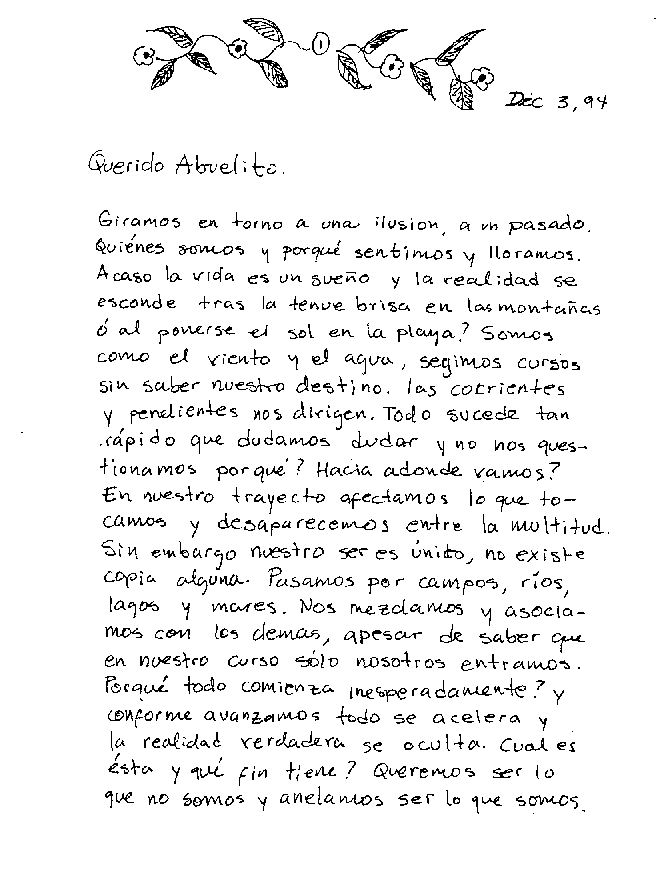 Dec 3, 94
Querido Abuelito.
Giramos en torno a una ilusion, a un pasado.
Quiénes somos y porqué sentimos y lloramos.
Acaso la vida es un sueño y la realidad se
esconde tras la tenue brisa en las montañas
ó al ponerse el sol en la playa? Somos
como el viento y el agua, segimos cursos
sin saber nuestro destino. las corrientes
y pendientes nos dirigen. Todo sucede tan
rápido que dudamos dudar y no nos ques-
tionamos porqué? Hacia adonde vamos?
En nuestro trayecto afectamos lo que to-
camos y desaparecemos entre la multitud.
Sin embargo nuestro ser es único, no existe
copia alguna. Pasamos por campos, ríos,
lagos y mares. Nos mezclamos y asocia-
mos con los demas, apesar de saber que
en nuestro curso sólo nosotros entramos.
Porqué todo comienza inesperadamente? y
conforme avanzamos todo se acelera y
la realidad verdadera se oculta. Cual es
ésta y qué fin tiene? Queremos ser lo
que no somos y anelamos ser lo que somos.